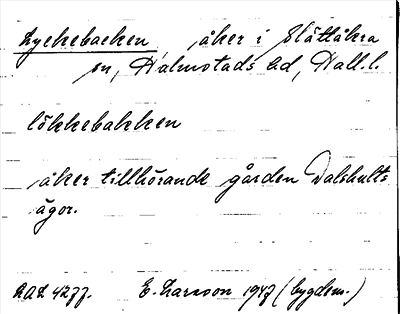 Lyckebacken åker i Slättåkra
sn, Halmstads hd, Hall. l.
lökkebakken
åker tillhörande gården Dalshults
ägor.
E. Larsson 1947 (bygdem.)